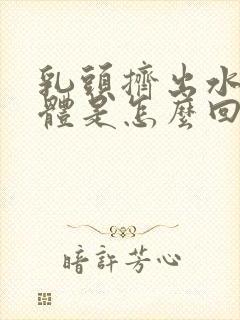 乳頭擠出水
體是怎麼回
暗許芳心